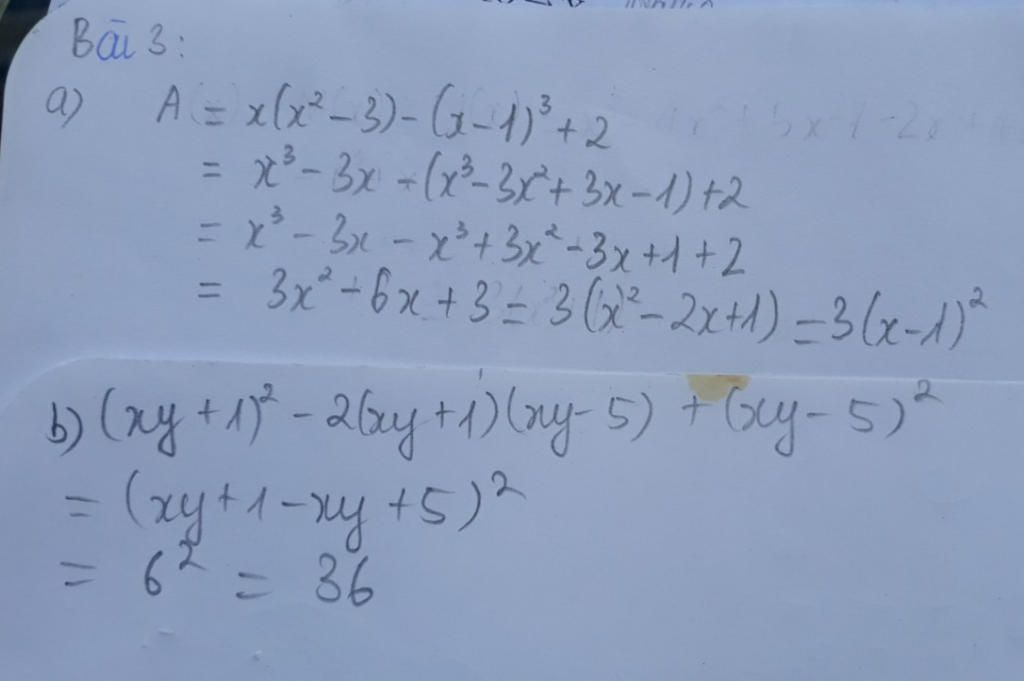 Bài 3:
a) A = x(x² - 3) - (x - 1)³ + 2
= x³ - 3x - (x³ - 3x² + 3x - 1) + 2
= x³ - 3x - x³ + 3x² - 3x + 1 + 2
= 3x² - 6x + 3 = 3(x² - 2x + 1) = 3(x - 1)²
b) (xy + 1)² - 2(xy + 1)(xy - 5) + (xy - 5)²
= (xy + 1 - xy + 5)²
= 6² = 36